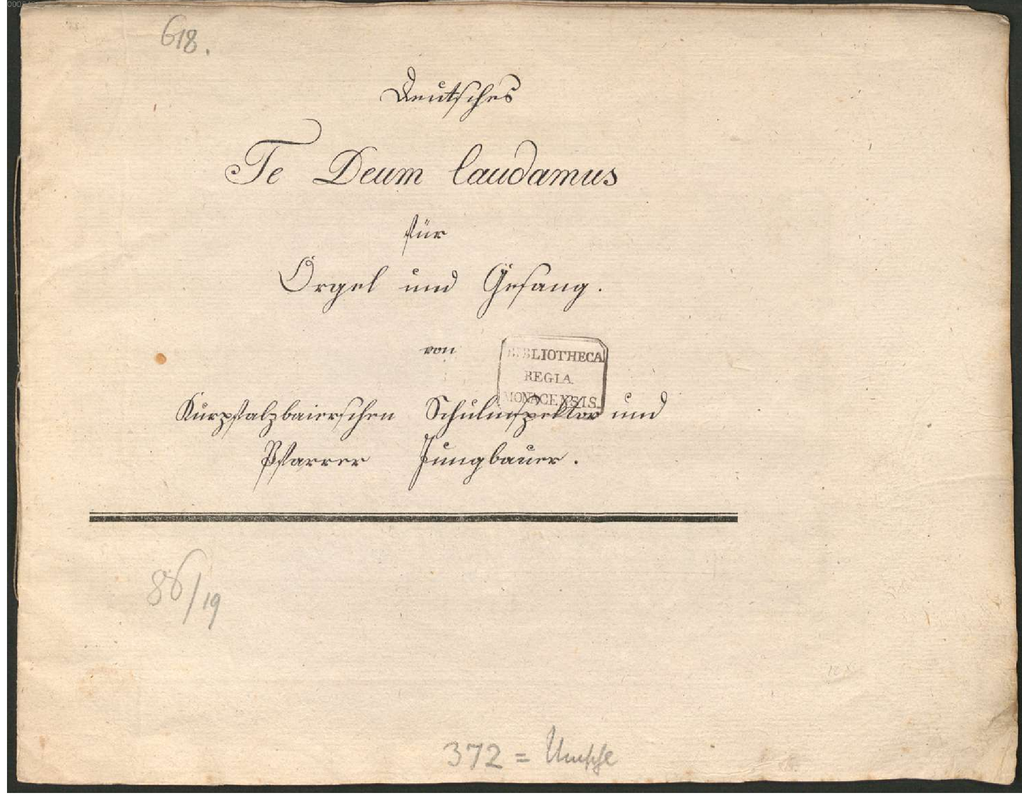 618.
Deutsches
Te Deum laudamus
für
Orgel und Gesang.
von
BIBLIOTHECA
REGIA
MONACENSIS.
Kurpfalzbaierschen Schulinspektor und
Pfarrer Jungbauer.
86/19
372 =